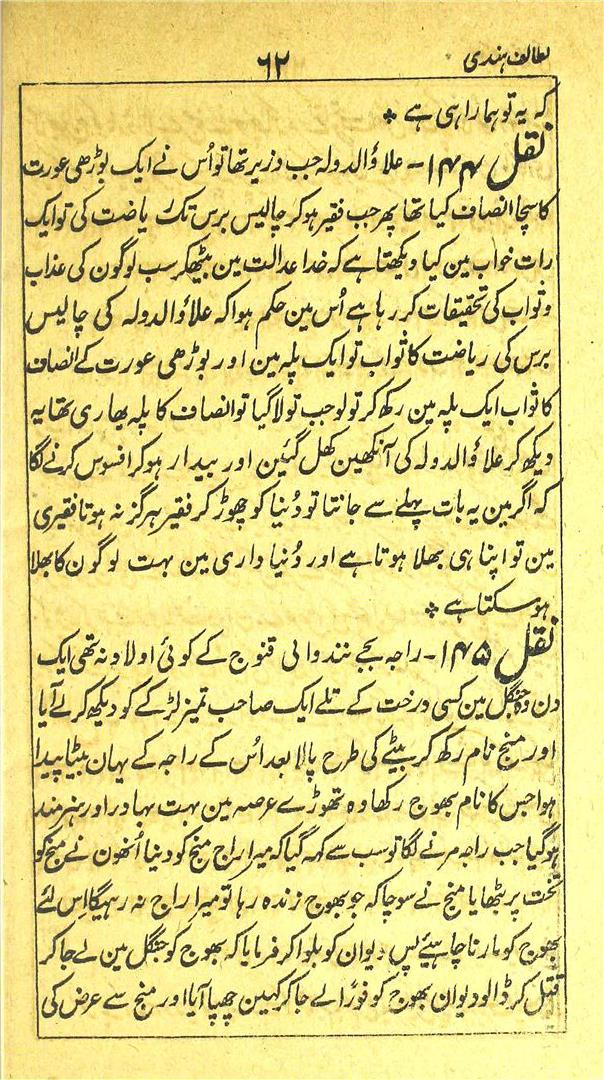 لطائف ہندی
۶۲
کہ یہ تو ہمارا ہی ہے *
نقل ۱۴۴- علاؤالدولہ جب وزیر تھا تو اُس نے ایک بوڑھی عورت
کا سچا انصاف کیا تھا پھر جب فقیر ہو کر چالیس برس تک ریاضت کی تو ایک
رات خواب مین کیا دیکھتا ہے کہ خدا عدالت مین بیٹھکر سب لوگون کی عذاب
و ثواب کی تحقیقات کر رہا ہے اُس مین حکم ہوا کہ علاؤالدولہ کی چالیس
برس کی ریاضت کا ثواب تو ایک پلہ مین اور بوڑھی عورت کے انصاف
کا ثواب ایک پلہ مین رکھ کر تولو جب تولا گیا تو انصاف کا پلہ بھاری تھا یہ
دیکھ کر علاؤالدولہ کی آنکھین کھل گئین اور بیدار ہو کر افسوس کرنے لگا
کہ اگر مین یہ بات پہلے سے جانتا تو دُنیا کو چھوڑ کر فقیر ہرگز نہ ہوتا فقیری
مین تو اپنا ہی بھلا ہوتا ہے اور دُنیا داری مین بہت لوگون کا بھلا
ہو سکتا ہے *
نقل ۱۴۵- راجہ بجے نند والی قنوج کے کوئی اولاد نہ تھی ایک
دن وہ جنگل مین کسی درخت کے تلے ایک صاحب تمیز لڑکے کو دیکھ کر لے آیا
اور منج نام رکھ کر بیٹے کی طرح پالا بعد اُس کے راجہ کے یہان بیٹا پیدا
ہوا جس کا نام بھوج رکھا وہ تھوڑے عرصہ مین بہت بہادر اور ہنرمند
ہو گیا جب راجہ مرنے لگا تو سب سے کہہ گیا کہ میرا راج منج کو دینا اُنھون نے منج کو
تخت پر بٹھایا منج نے سوچا کہ جو بھوج زندہ رہا تو میرا راج نہ رہیگا اِس لئے
بھوج کو مارنا چاہیئے پس دیوان کو بلوا کر فرمایا کہ بھوج کو جنگل مین لے جا کر
قتل کر ڈالو دیوان بھوج کو فوراً لے جا کر کہین چھپا آیا اور منج سے عرض کی